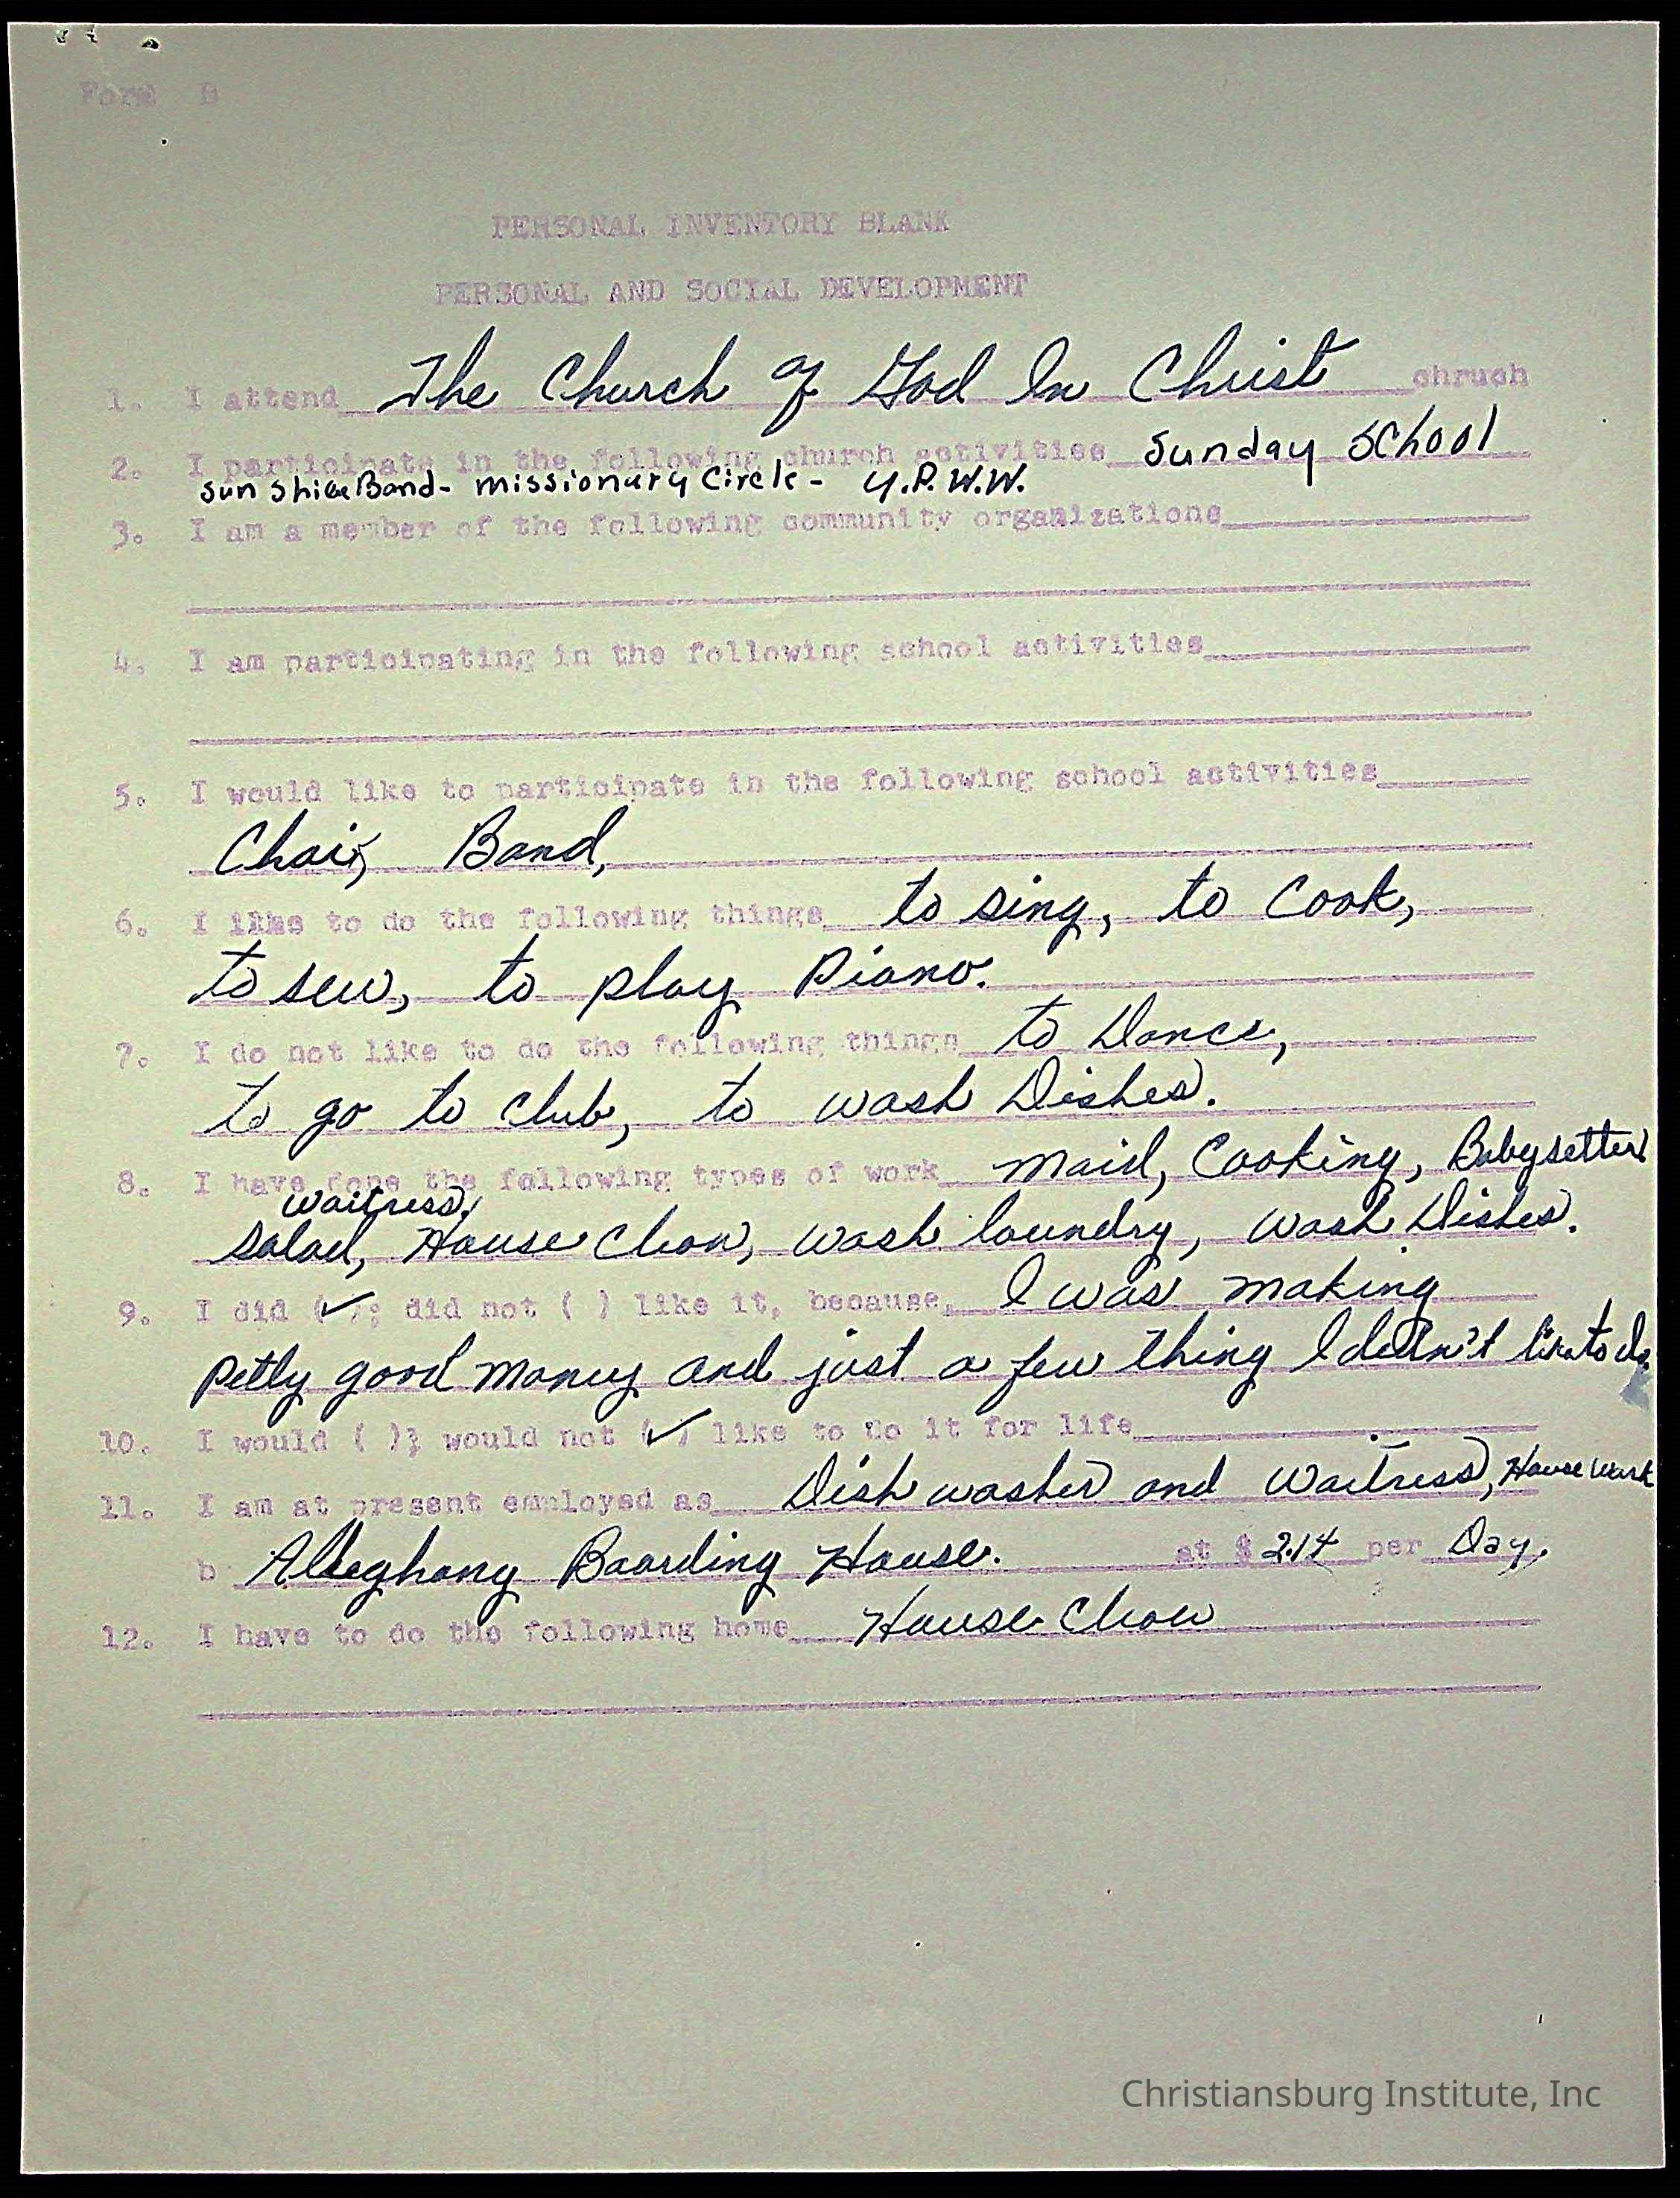 Form B
PERSONAL INVENTORY BLANK
PERSONAL AND SOCIAL DEVELOPMENT
1. I attend The Church of God In Christ chruch
2. I participate in the following church activities Sunday School
Sun Shine Band - missionary Circle - Y.P.W.W.
3. I am a member of the following community organizations
4. I am participating in the following school activities
5. I would like to participate in the following school activities
Choir, Band,
6. I like to do the following things to sing, to Cook,
to sew, to play Piano.
7. I do not like to do the following things to Dance,
to go to club, to wash Dishes.
8. I have done the following types of work maid, Cooking, Babysetter
waitress,
salad, House Chow, wash laundry, wash Dishes.
9. I did (✓); did not ( ) like it, because I was making
petty good money and just a few thing I didn't like to do
10. I would ( ); would not (✓) like to do it for life
11. I am at present employed as Dish washer and Waitress, House Work
b Alleghany Boarding House. at $ 2.14 per Day.
12. I have to do the following home House Chow
Christiansburg Institute, Inc